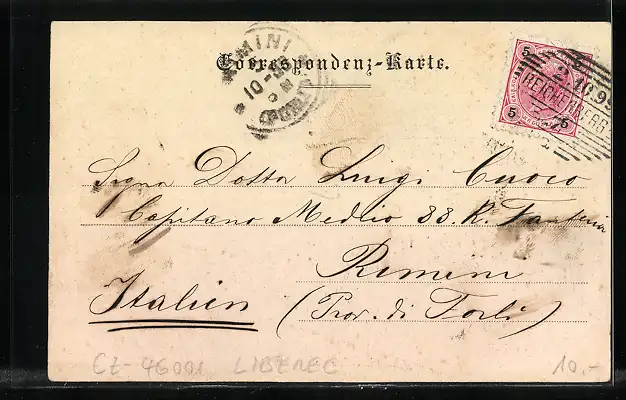 Correspondenz-Karte.
RIMINI
10-
(FORLI)
5 5
5 5
99
REICHENBERG
Sigra Dotta Luigi Cuoco
Capitano Medico 33. R. Fanteria
Rimini
Italien (Prov. di Forlì)
CZ-46001 LIBEREC 10.-